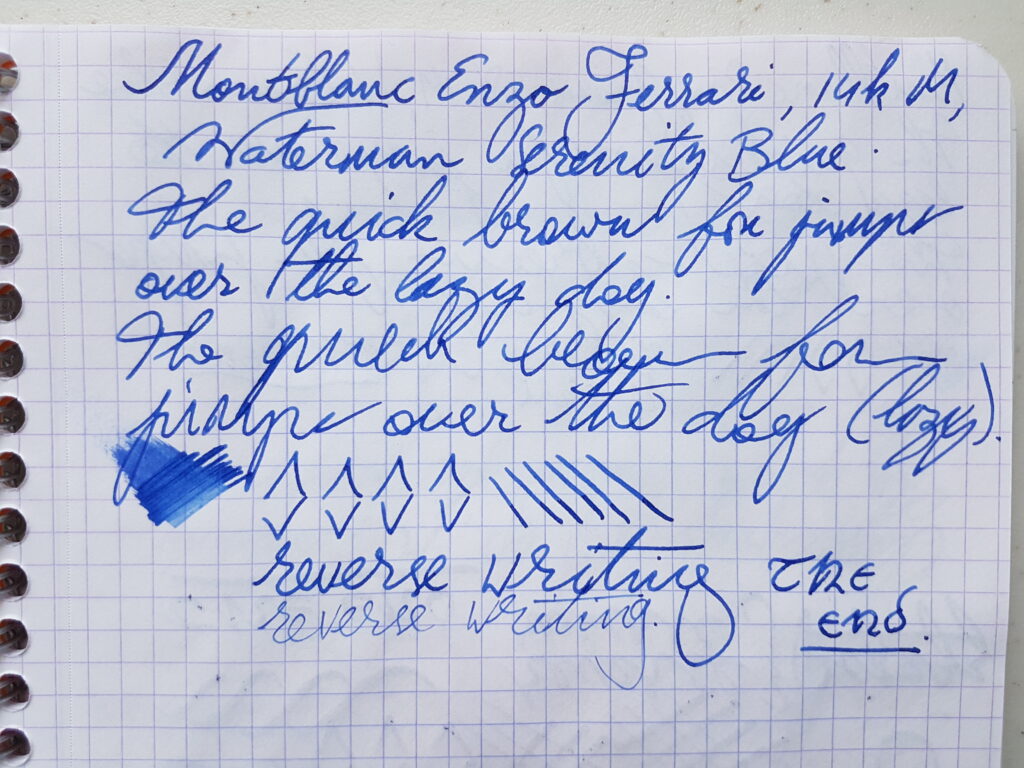 Montblanc Enzo Ferrari, 14k M,
Waterman Serenity Blue.
The quick brown fox jumps
over the lazy dog.
The quick brown fox
jumps over the dog (lazy).
reverse writing THE
reverse writing. END.